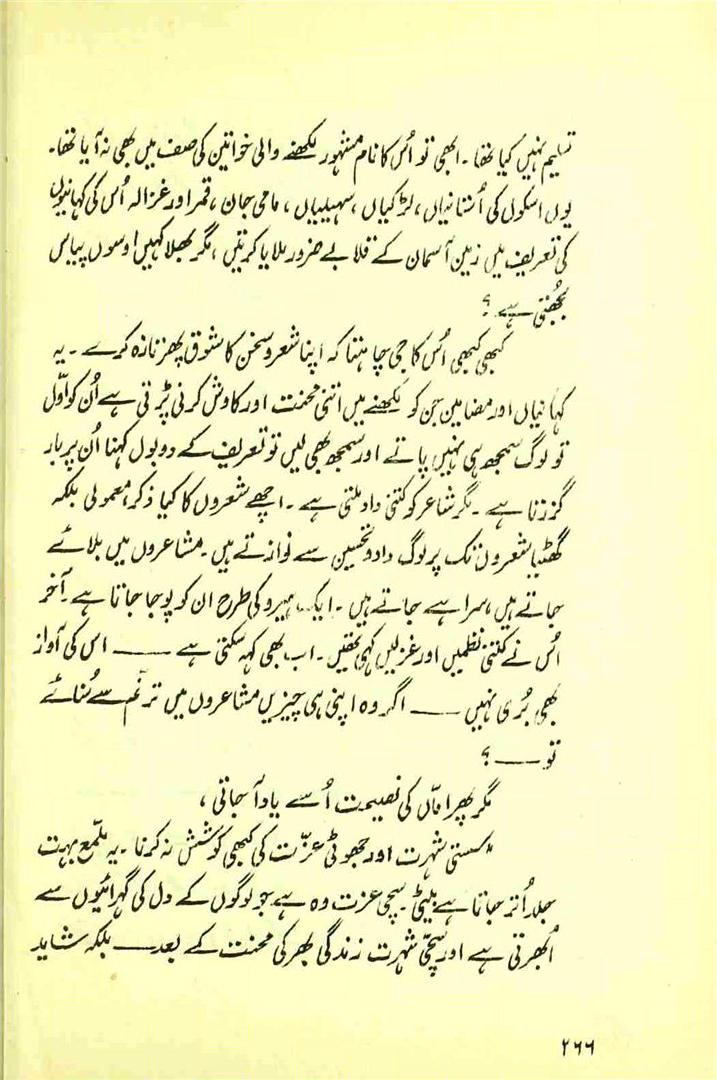 تسلیم نہیں کیا تھا ۔ ابھی تو اُس کا نام مشہور لکھنے والی خواتین کی صف میں بھی نہ آیا تھا۔
یوں اسکول کی اُستانیاں، لڑکیاں، سہیلیاں، مامی جان، قمر اور غزالہ اُس کی کہانیوں
کی تعریف میں زمین آسمان کے قلابے ضرور ملایا کرتیں، مگر بھلا کہیں اوسوں پیاس
بجھتی ہے ؟
کبھی کبھی اُس کا جی چاہتا کہ اپنا شعر و سخن کا شوق پھر تازہ کرے ۔ یہ
کہانیاں اور مضامین جن کو لکھنے میں اتنی محنت اور کاوش کرنی پڑتی ہے اُن کو اوّل
تو لوگ سمجھ ہی نہیں پاتے اور سمجھ بھی لیں تو تعریف کے دو بول کہنا اُن پر بار
گزرتا ہے ۔ مگر شاعر کو کتنی داد ملتی ہے ۔ اچھے شعروں کا کیا ذکر، معمولی بلکہ
گھٹیا شعروں تک پر لوگ داد و تحسین سے نوازتے ہیں ۔ مشاعروں میں بلائے
جاتے ہیں، سراہے جاتے ہیں ۔ ایک ہیرو کی طرح ان کو پوجا جاتا ہے ۔ آخر
اُس نے کتنی نظمیں اور غزلیں کہی تھیں ۔ اب بھی کہہ سکتی ہے —— اس کی آواز
بھی بُری نہیں —— اگر وہ اپنی ہی چیزیں مشاعروں میں ترنّم سے سُنائے
تو —— ؟
مگر پھر امّاں کی نصیحت اُسے یاد آ جاتی ،
”سستی شہرت اور جھوٹی عزّت کی کبھی کوشش نہ کرنا ۔ یہ ملمّع بہت
جلد اُتر جاتا ہے بیٹی ۔ سچی عزت وہ ہے جو لوگوں کے دل کی گہرائیوں سے
اُبھرتی ہے اور سچّی شہرت زندگی بھر کی محنت کے بعد —— بلکہ شاید
۲۶۶